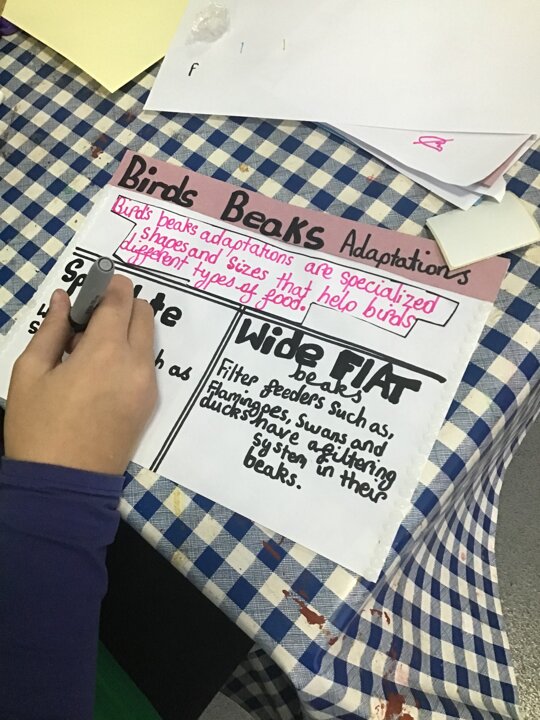 F
Birds Beaks Adaptations
Birds beaks adaptations are specialized
shapes and sizes that help birds
different types of food.
Wide FlAT
beaks
Filter feeders such as,
Flamingoes, Swans and
ducks have a filtering
system in their
beaks.
as